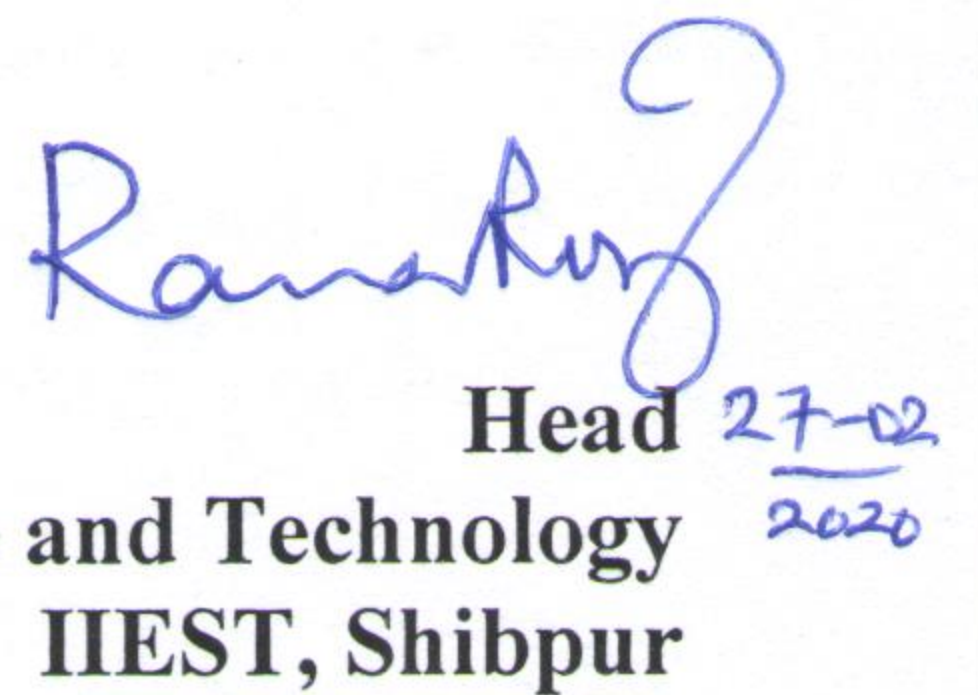 Head 27-02
2020
and Technology
IIEST, Shibpur